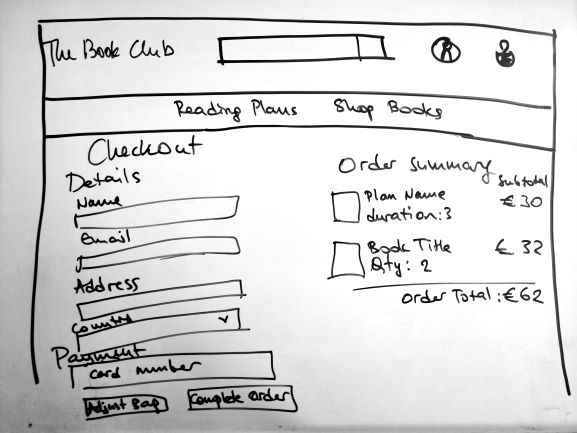 The Book Club
Reading Plans Shop Books
Checkout
Details
Name
Email
Address
Country
Payment
card number
Adjust Bag Complete order
Order summary
subtotal
Plan Name €30
duration:3
Book Title €32
Qty: 2
order Total:€62